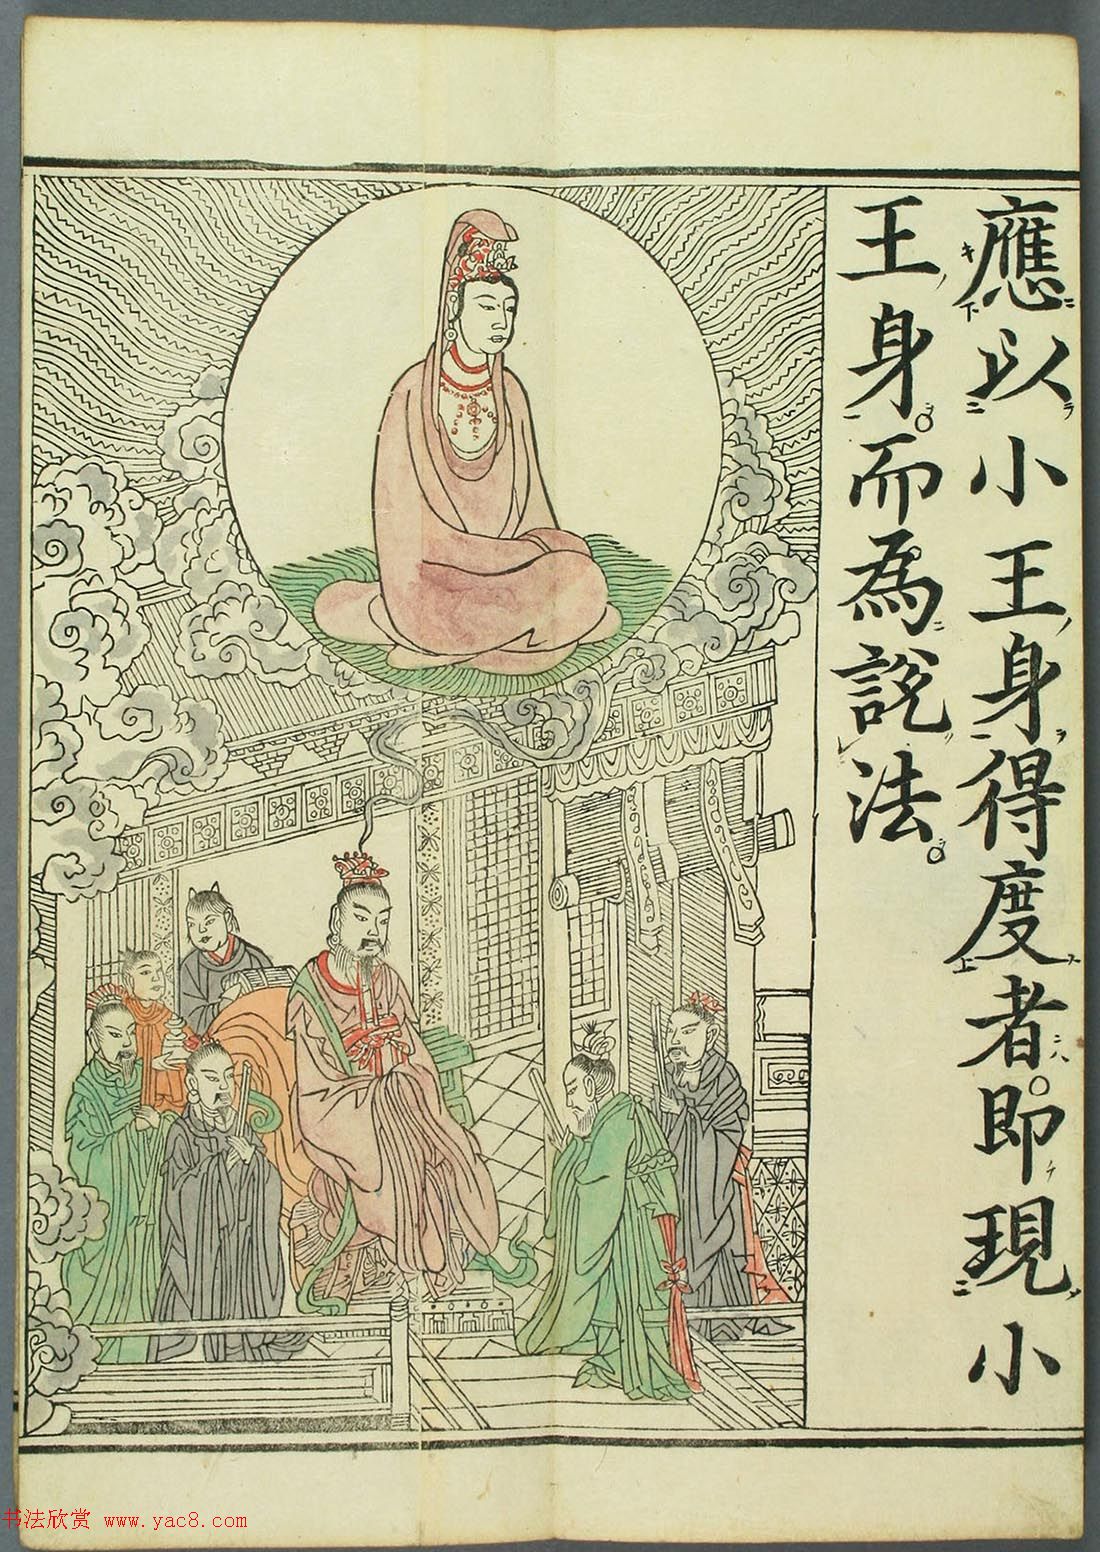 應以小王身得度者即現小
王身而為說法
书法欣赏 www.yac8.com